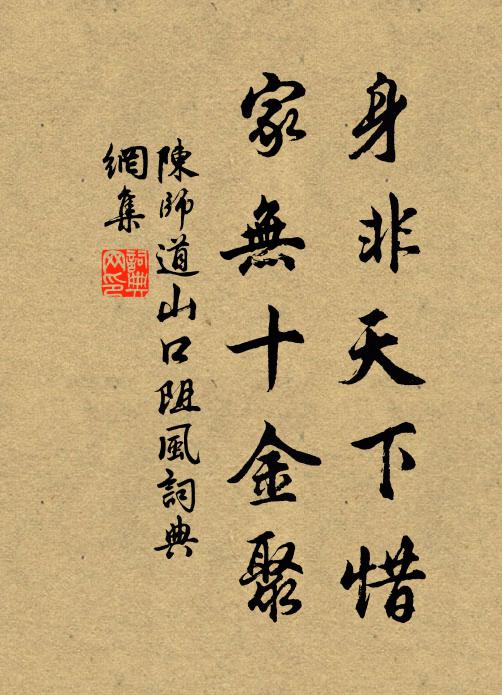 身非天下惜
家無十金聚
陳師道山口阻風詞典
網集
詞典網印